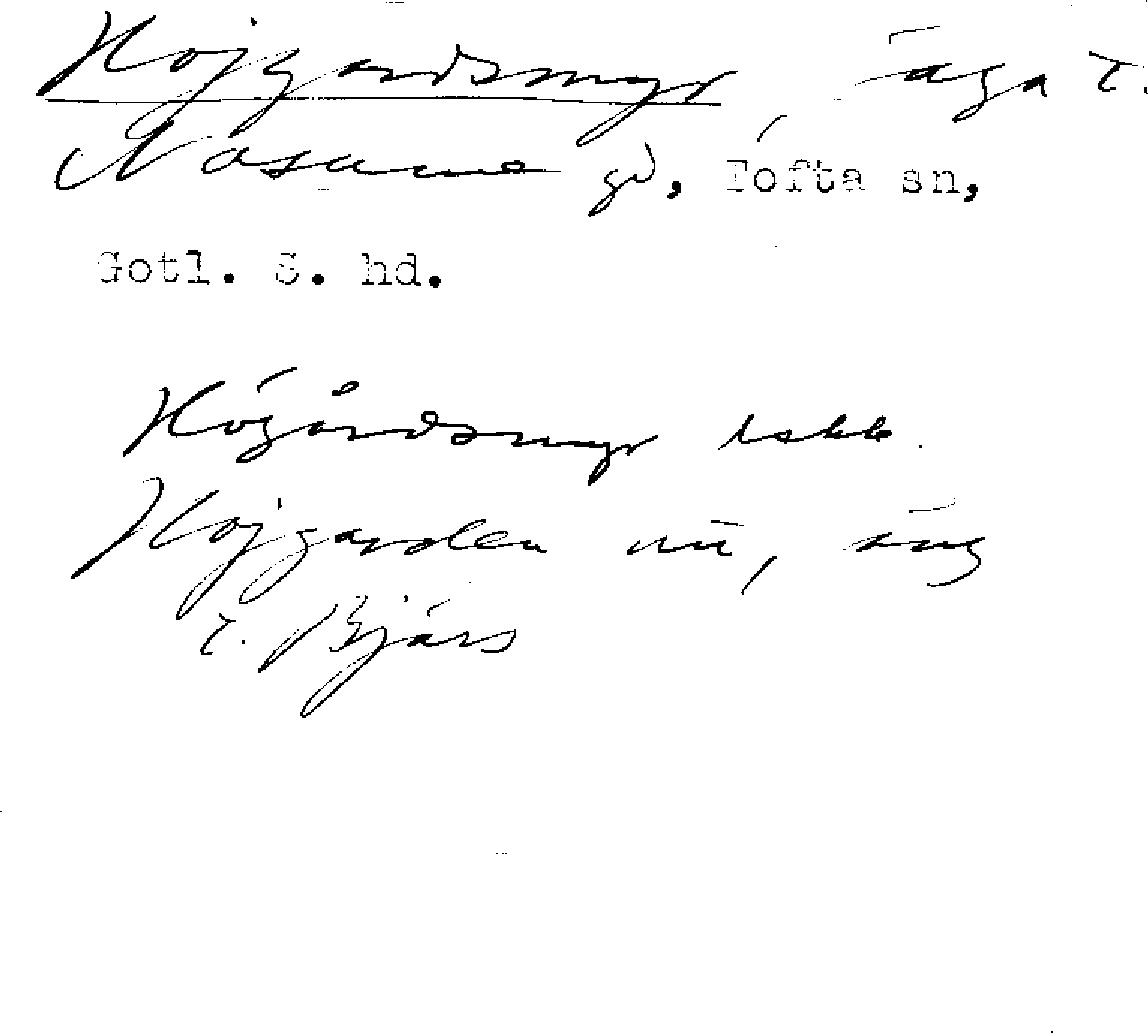 Hojgardsmyr, äga t.
Nasume gd, Tofta sn,
Gotl. S. hd.
Högårdsmyr
Hojgarden nu, äng
t. Bjärs